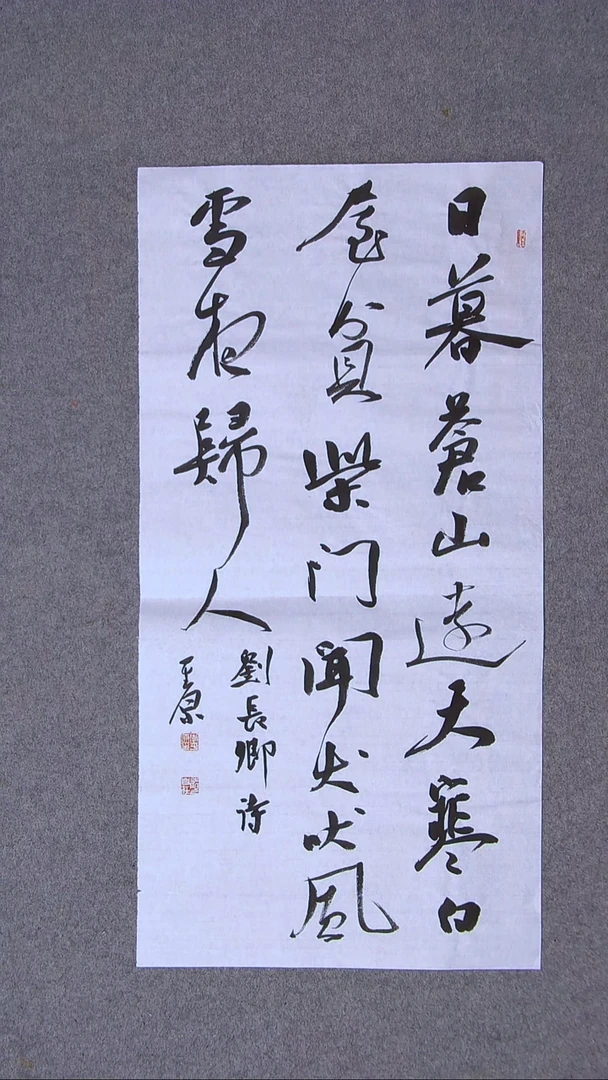 日暮蒼山遠天寒白
屋貧柴门闻犬吠風
雪夜歸人
劉長卿诗
王原